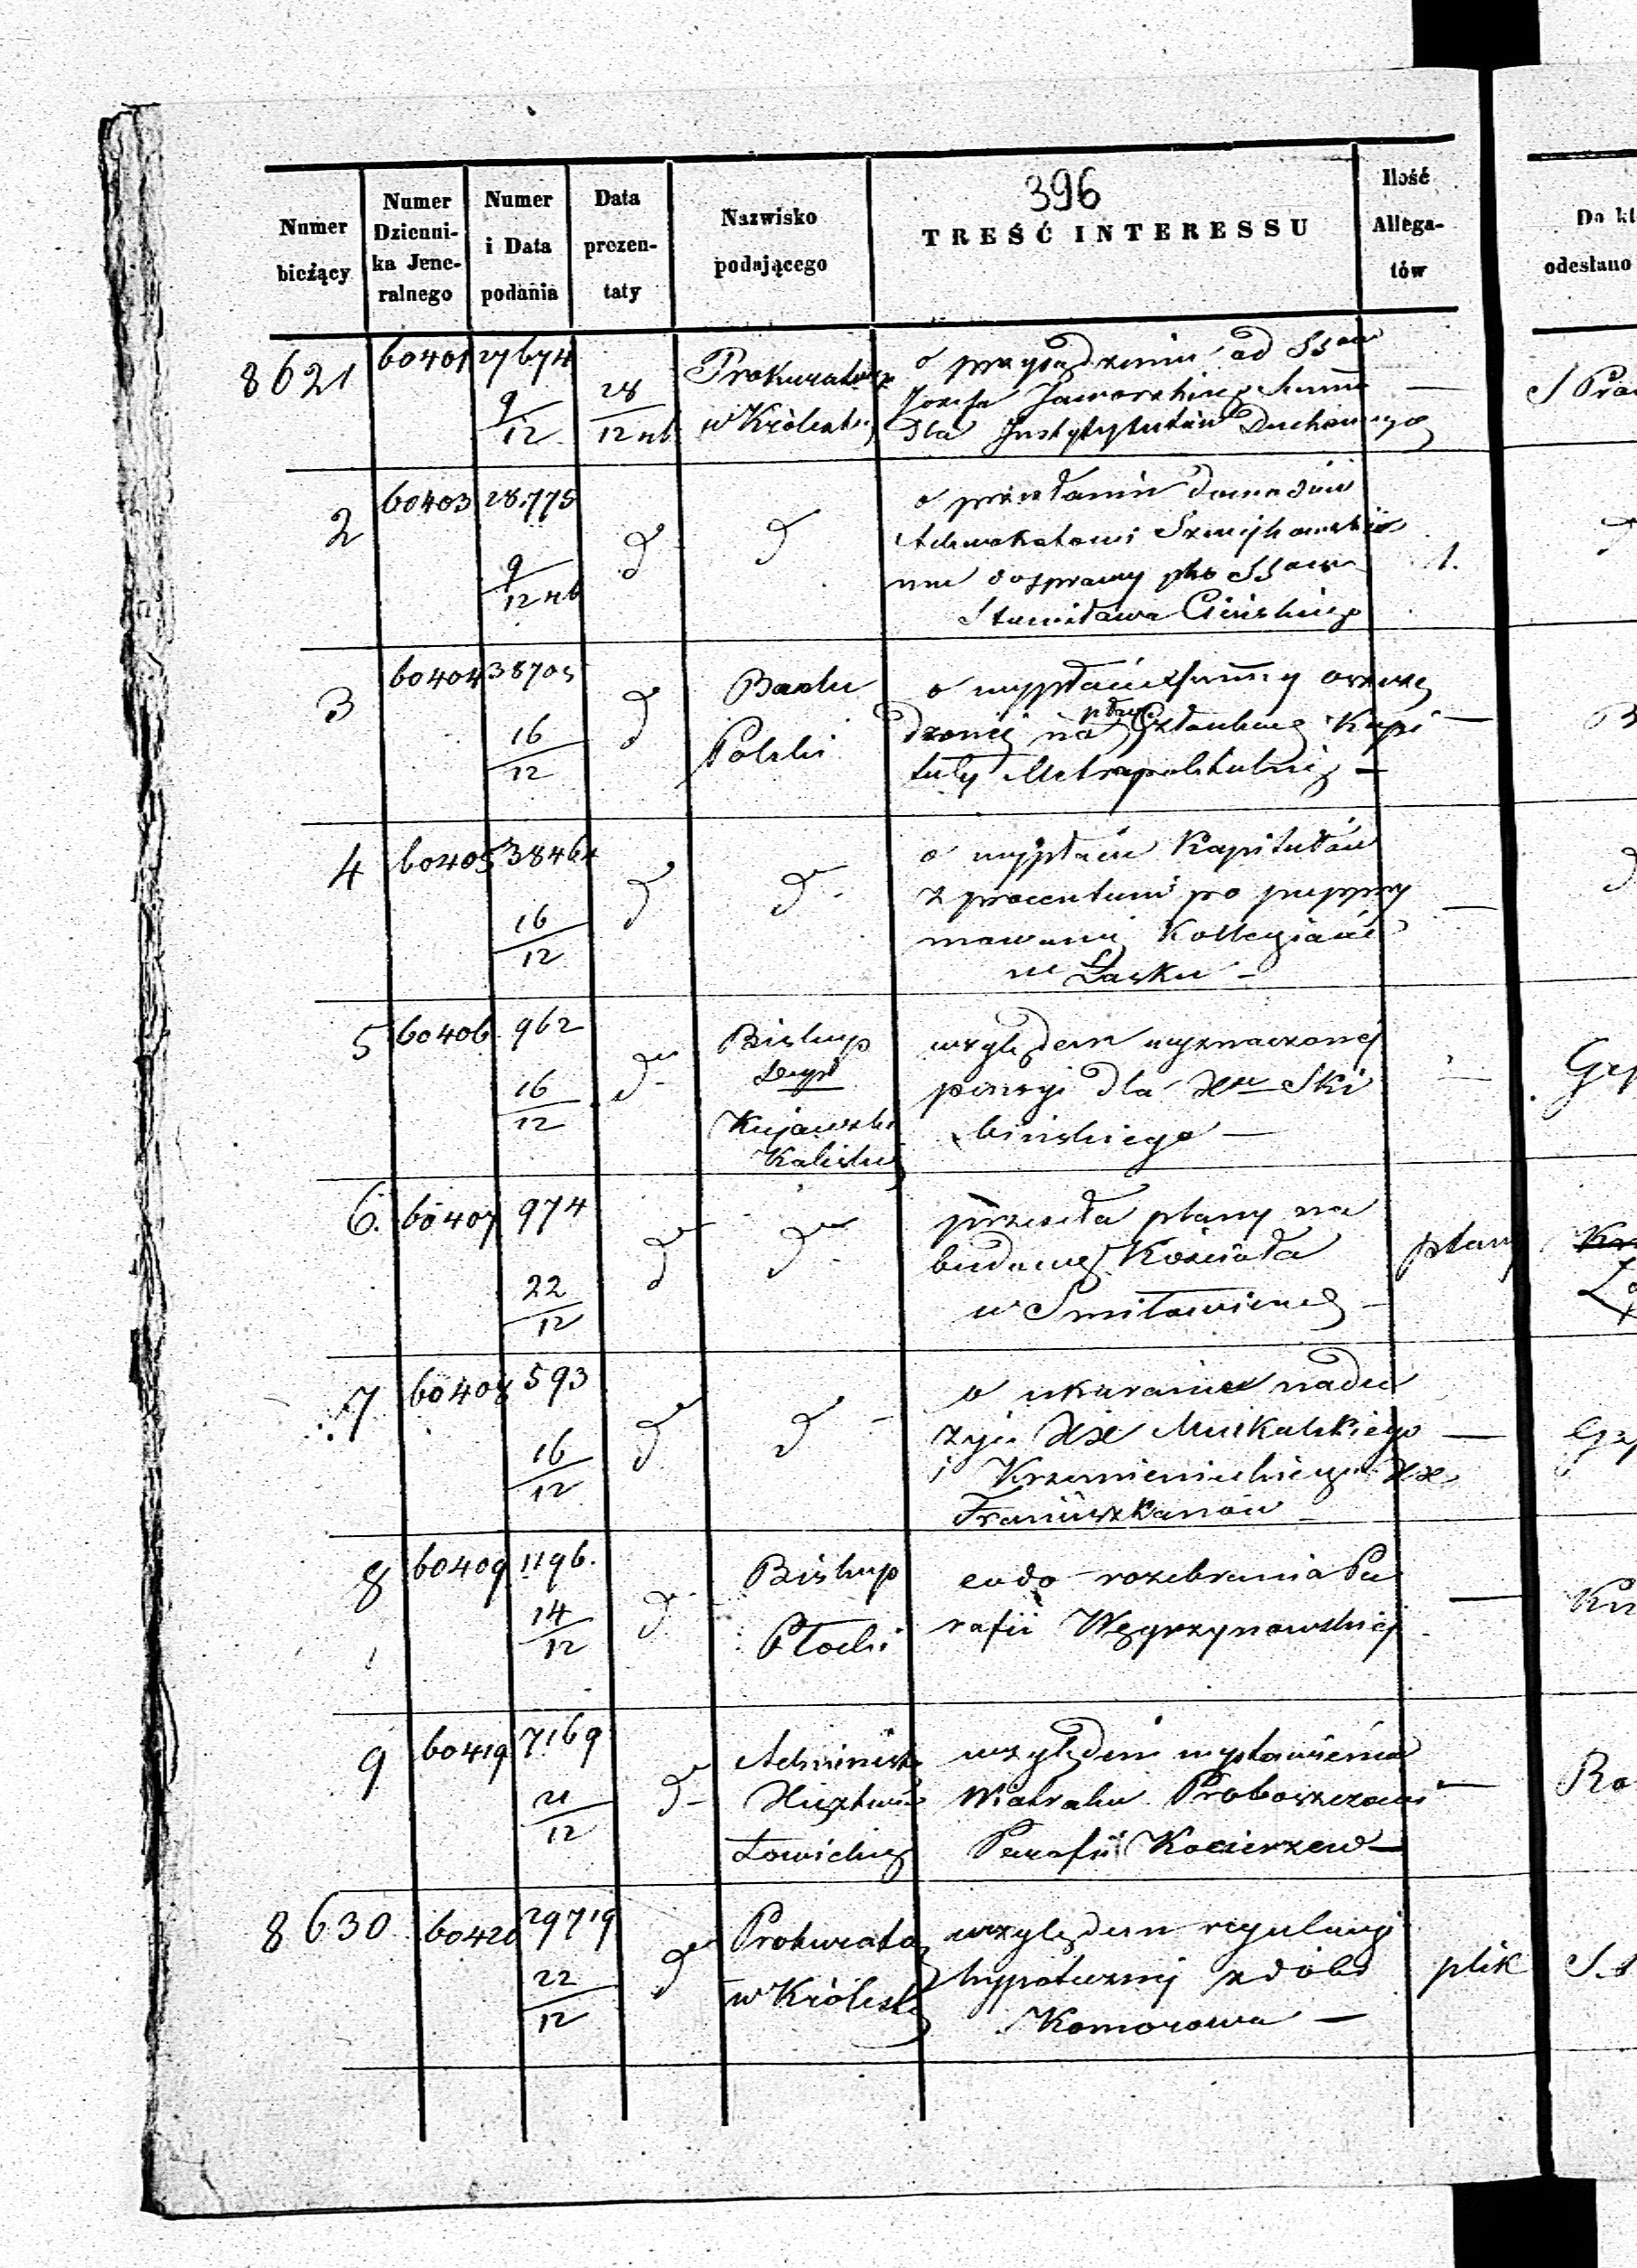 396
Numer bieżący | Numer Dziennika Jeneralnego | Numer i Data podania | Data prezentaty | Nazwisko podającego | TREŚĆ INTERESSU | Ilość Allegatów | odesłano
8621 | 60401 | 27674 9/12 | 28/12 | Prokurator w Królestw | o przysądzeniu od SSów
Józefa Jaworskiego Summ
dla Instytytutów Duchownego
2 | 60403 | 28,775 9/12 | d | d | o przesłaniu dowodów
Adwokatowi
do sprawy pko SSów | 1.
Stanisława Cieńskiego
3 | 60404 | 38705 16/12 | d | Banku Polski | o wypłacie summy
na Kapi
tuły Metropolitalnej —
4 | 60405 | 38464 16/12 | d | d | o wypłacie Kapitałów
z procentami po
Kollegiacie
w Łasku —
5 | 60406 | 962 16/12 | d | Biskup Kujawsko Kaliski | względem wyznaczonej
pensyi dla Xa Ski
bińskiego —
6. | 60407 | 974 22/12 | d | d | przesyła plany na
budowę Kościoła | plany
w Smiłowicach
7 | 60408 | 593 16/12 | d | d | o ukaranie nadu
życia XX Muskalskiego —
i Krzemienieckiego XX
Franciszkanów
8 | 60409 | 1196. 14/12 | d | Biskup Płocki | co do rozebrania Pa
rafii Węgrzynowskiej —
9 | 60419 | 7169 21/12 | d | Administ Xięztwa Łowickieg | względem wystawienia
Wiatraka Proboszczowi —
Parafii Kocierzew —
8630 | 60420 | 29719 22/12 | d | Prokurator w Królestw | względem regulacyi
hypotecznej z dóbr | plik
Komorowa —